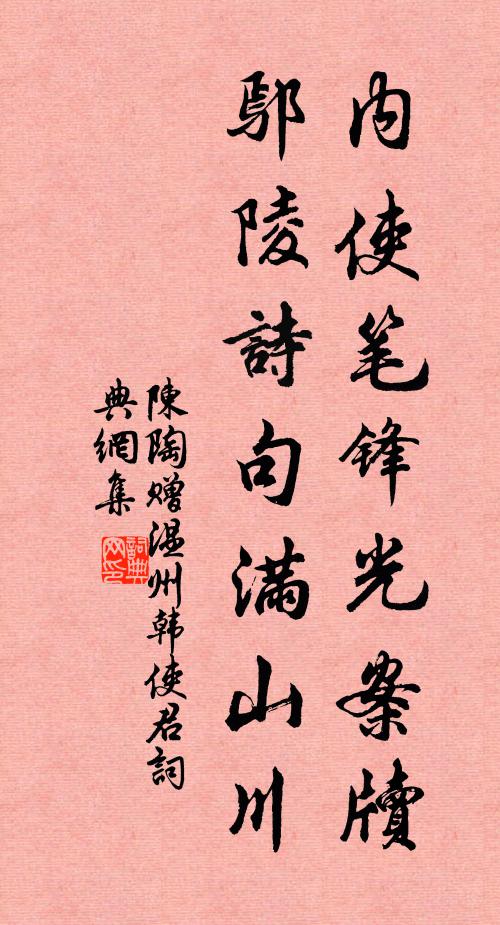 内使笔锋光案牍
鄢陵詩句满山川
陳陶赠温州韩使君詞
典網集
詞典网印